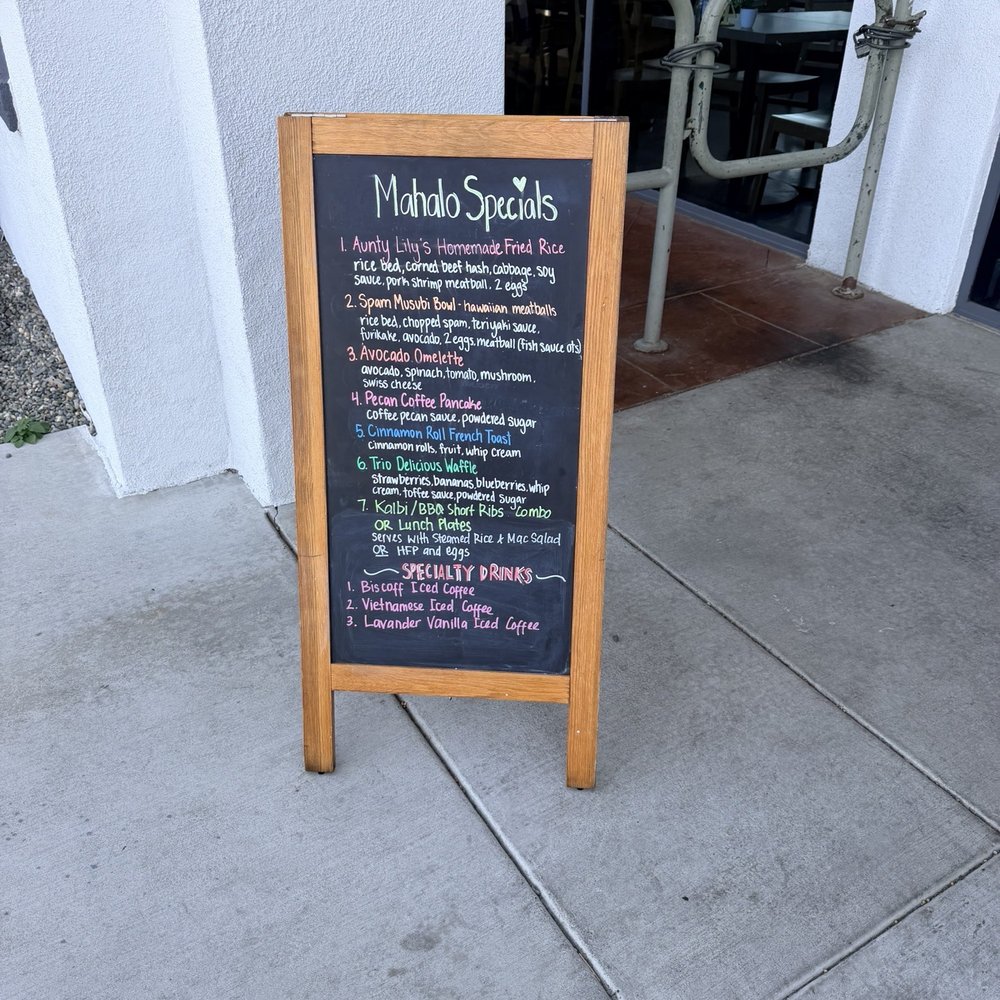 Mahalo Specials
1. Aunty Lily's Homemade Fried Rice
rice bed, corned beef hash, cabbage, soy
sauce, pork shrimp meatball, 2 eggs
2. Spam Musubi Bowl - hawaiian meatballs
rice bed, chopped spam, teriyaki sauce,
furikake, avocado, 2 eggs, meatball (fish sauce ots)
3. Avocado Omelette
avocado, spinach, tomato, mushroom,
swiss cheese
4. Pecan Coffee Pancake
coffee pecan sauce, powdered sugar
5. Cinnamon Roll French Toast
cinnamon rolls, fruit, whip cream
6. Trio Delicious Waffle
strawberries, bananas, blueberries, whip
cream, toffee sauce, powdered sugar
7. Kalbi/BBQ Short Ribs Combo
OR Lunch Plates
serves with Steamed Rice & Mac Salad
OR HFP and eggs
SPECIALTY DRINKS
1. Biscoff Iced Coffee
2. Vietnamese Iced Coffee
3. Lavander Vanilla Iced Coffee